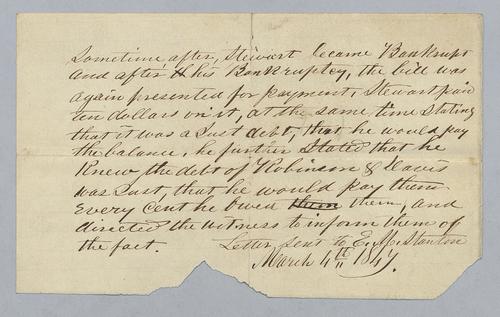 Sometime after, Stewart became Bankrupt
and after his Bankruptcy, the bill was
again presented for payment, Stewart paid
ten dollars on it, at the same time stating
that it was a Just debt, that he would pay
the balance, he further Stated that he
Knew the debt of Robinson & Davis
was Just, that he would pay them
Every cent he owed them them, and
directed the witness to inform them of
the fact.
Letter sent to E. M. Stanton
March 4th 1847.